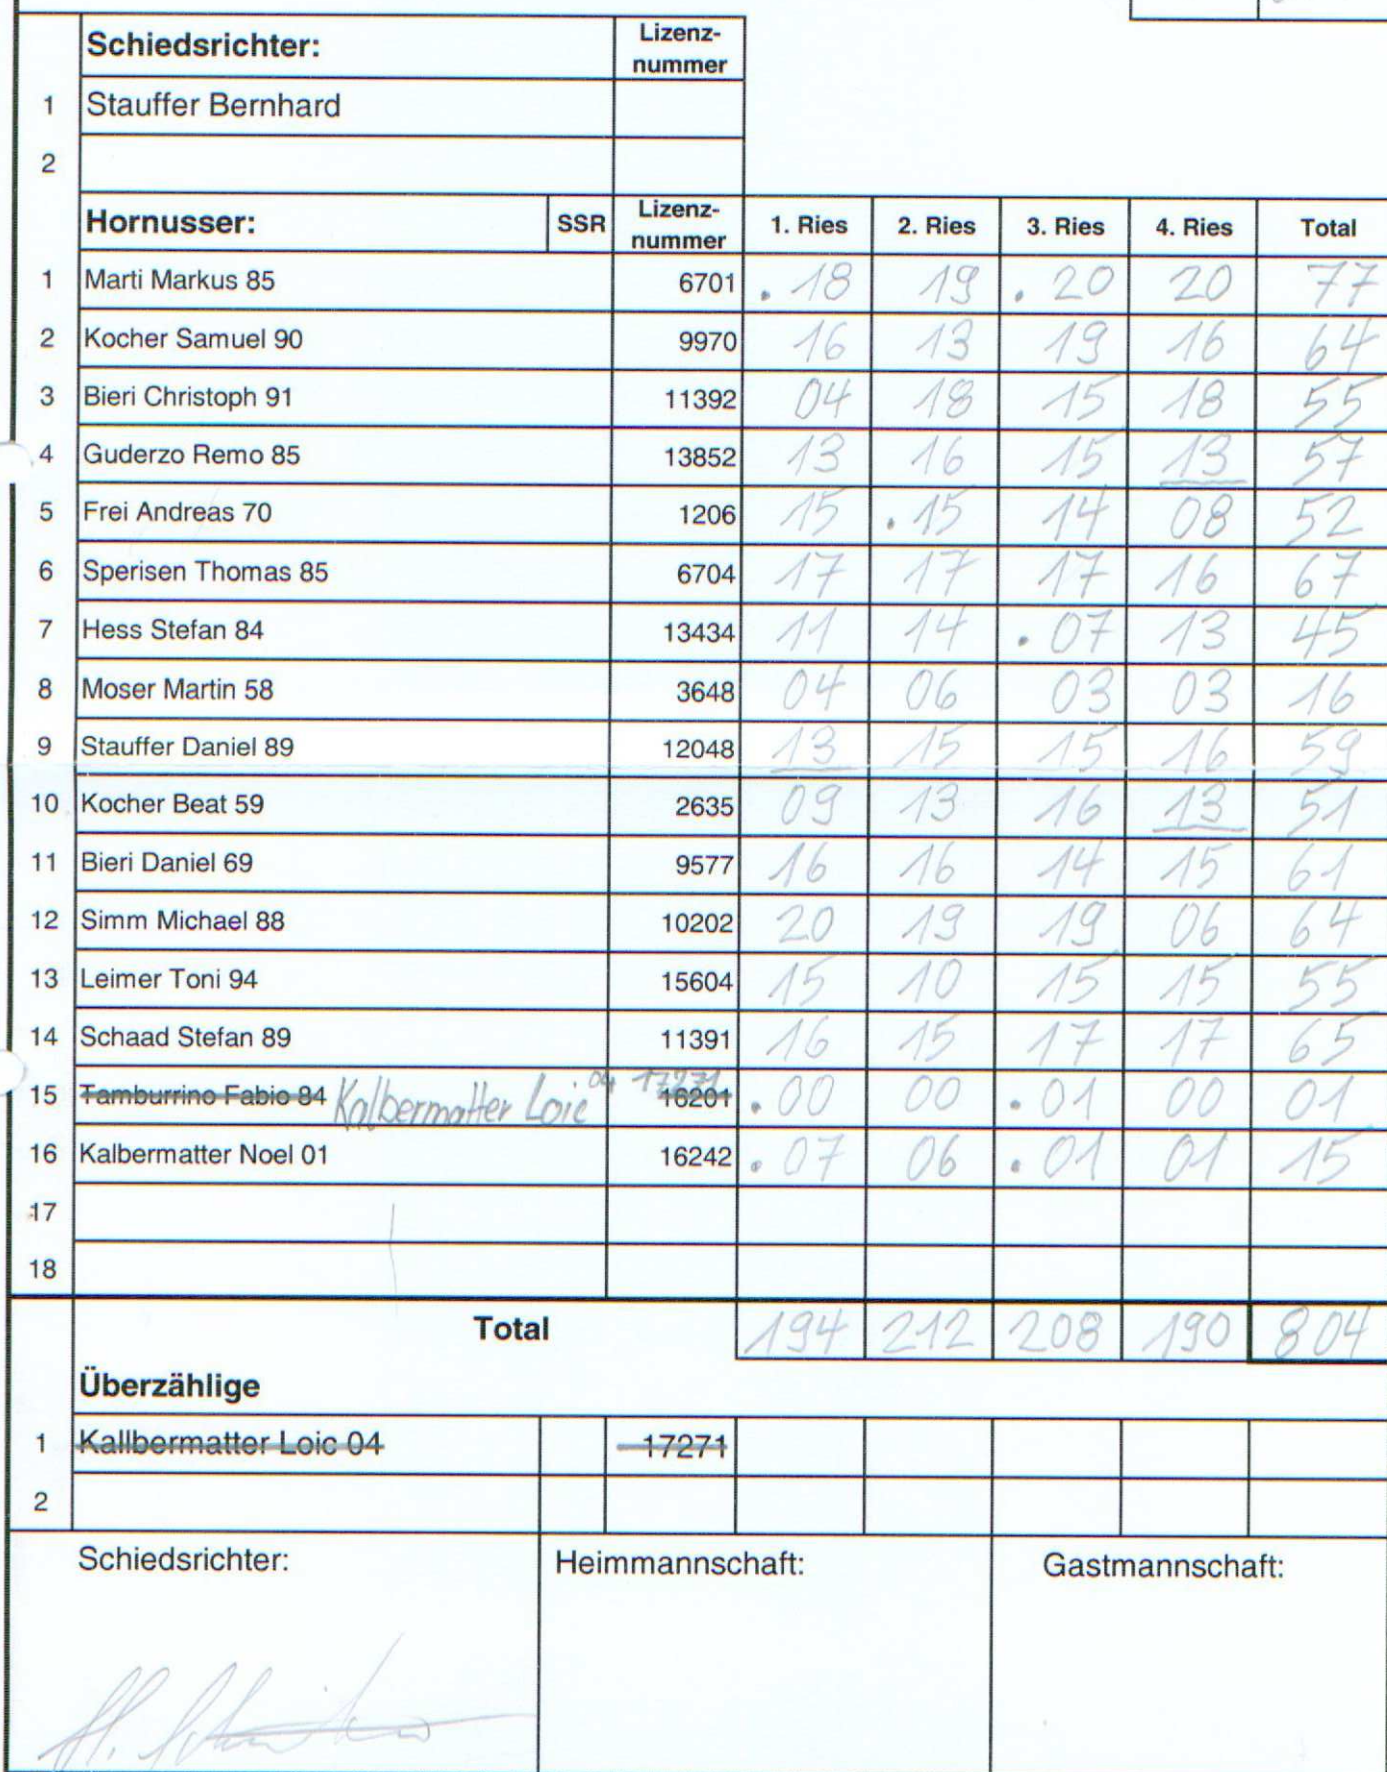 Schiedsrichter: Lizenz-nummer
1 Stauffer Bernhard
2
Hornusser: SSR Lizenz-nummer 1. Ries 2. Ries 3. Ries 4. Ries Total
1 Marti Markus 85 6701 . 18 19 . 20 20 77
2 Kocher Samuel 90 9970 16 13 19 16 64
3 Bieri Christoph 91 11392 04 18 15 18 55
4 Guderzo Remo 85 13852 13 16 15 13 57
5 Frei Andreas 70 1206 15 . 15 14 08 52
6 Sperisen Thomas 85 6704 17 17 17 16 67
7 Hess Stefan 84 13434 11 14 . 07 13 45
8 Moser Martin 58 3648 04 06 03 03 16
9 Stauffer Daniel 89 12048 13 15 15 16 59
10 Kocher Beat 59 2635 09 13 16 13 51
11 Bieri Daniel 69 9577 16 16 14 15 61
12 Simm Michael 88 10202 20 19 19 06 64
13 Leimer Toni 94 15604 15 10 15 15 55
14 Schaad Stefan 89 11391 16 15 17 17 65
15 Tamburrino Fabio 84 Kalbermatter Loic 04 17271 16201 . 00 00 . 01 00 01
16 Kalbermatter Noel 01 16242 . 07 06 . 01 01 15
17
18
Total 194 212 208 190 804
Überzählige
1 Kallbermatter Loic 04 17271
2
Schiedsrichter: Heimmannschaft: Gastmannschaft: